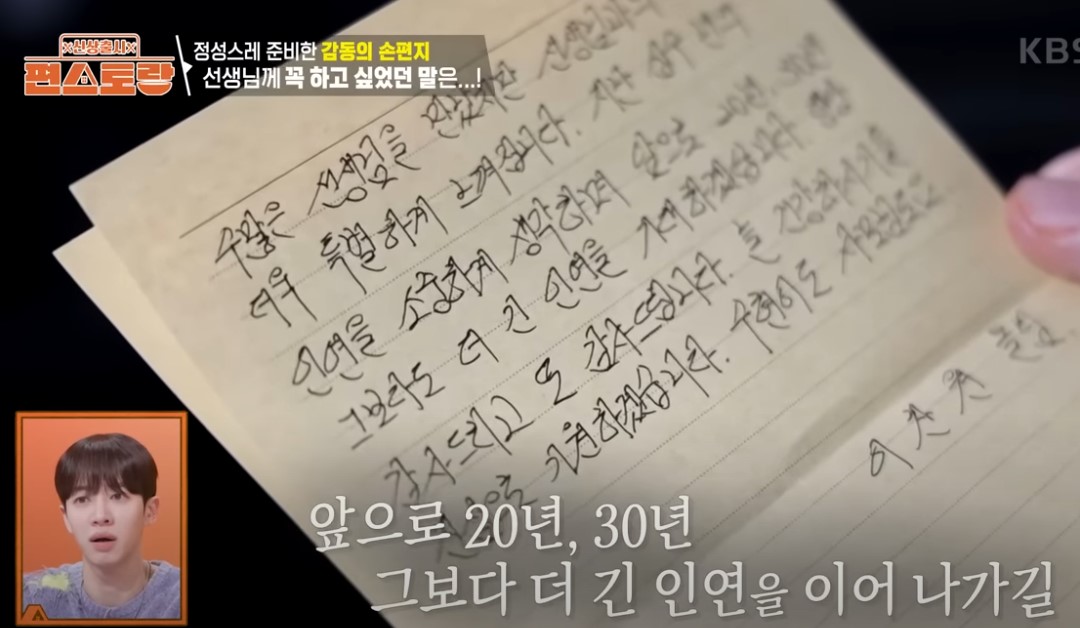 ×신상출시×
편스토랑
정성스레 준비한 감동의 손편지
선생님께 꼭 하고 싶었던 말은...!
KBS
수많은 선생님을 만났지만 선생님과의
더욱 특별하게 느껴집니다. 지난
인연을 소중하게 생각하며 앞으로 20년, 30년
그보다도 더 긴 인연을 기대하겠습니다
감사드리고 또 감사드립니다. 늘 건강하시기를
기원하겠습니다. 수현이도 사모님도
이찬원 올림.
앞으로 20년, 30년
그보다 더 긴 인연을 이어 나가길